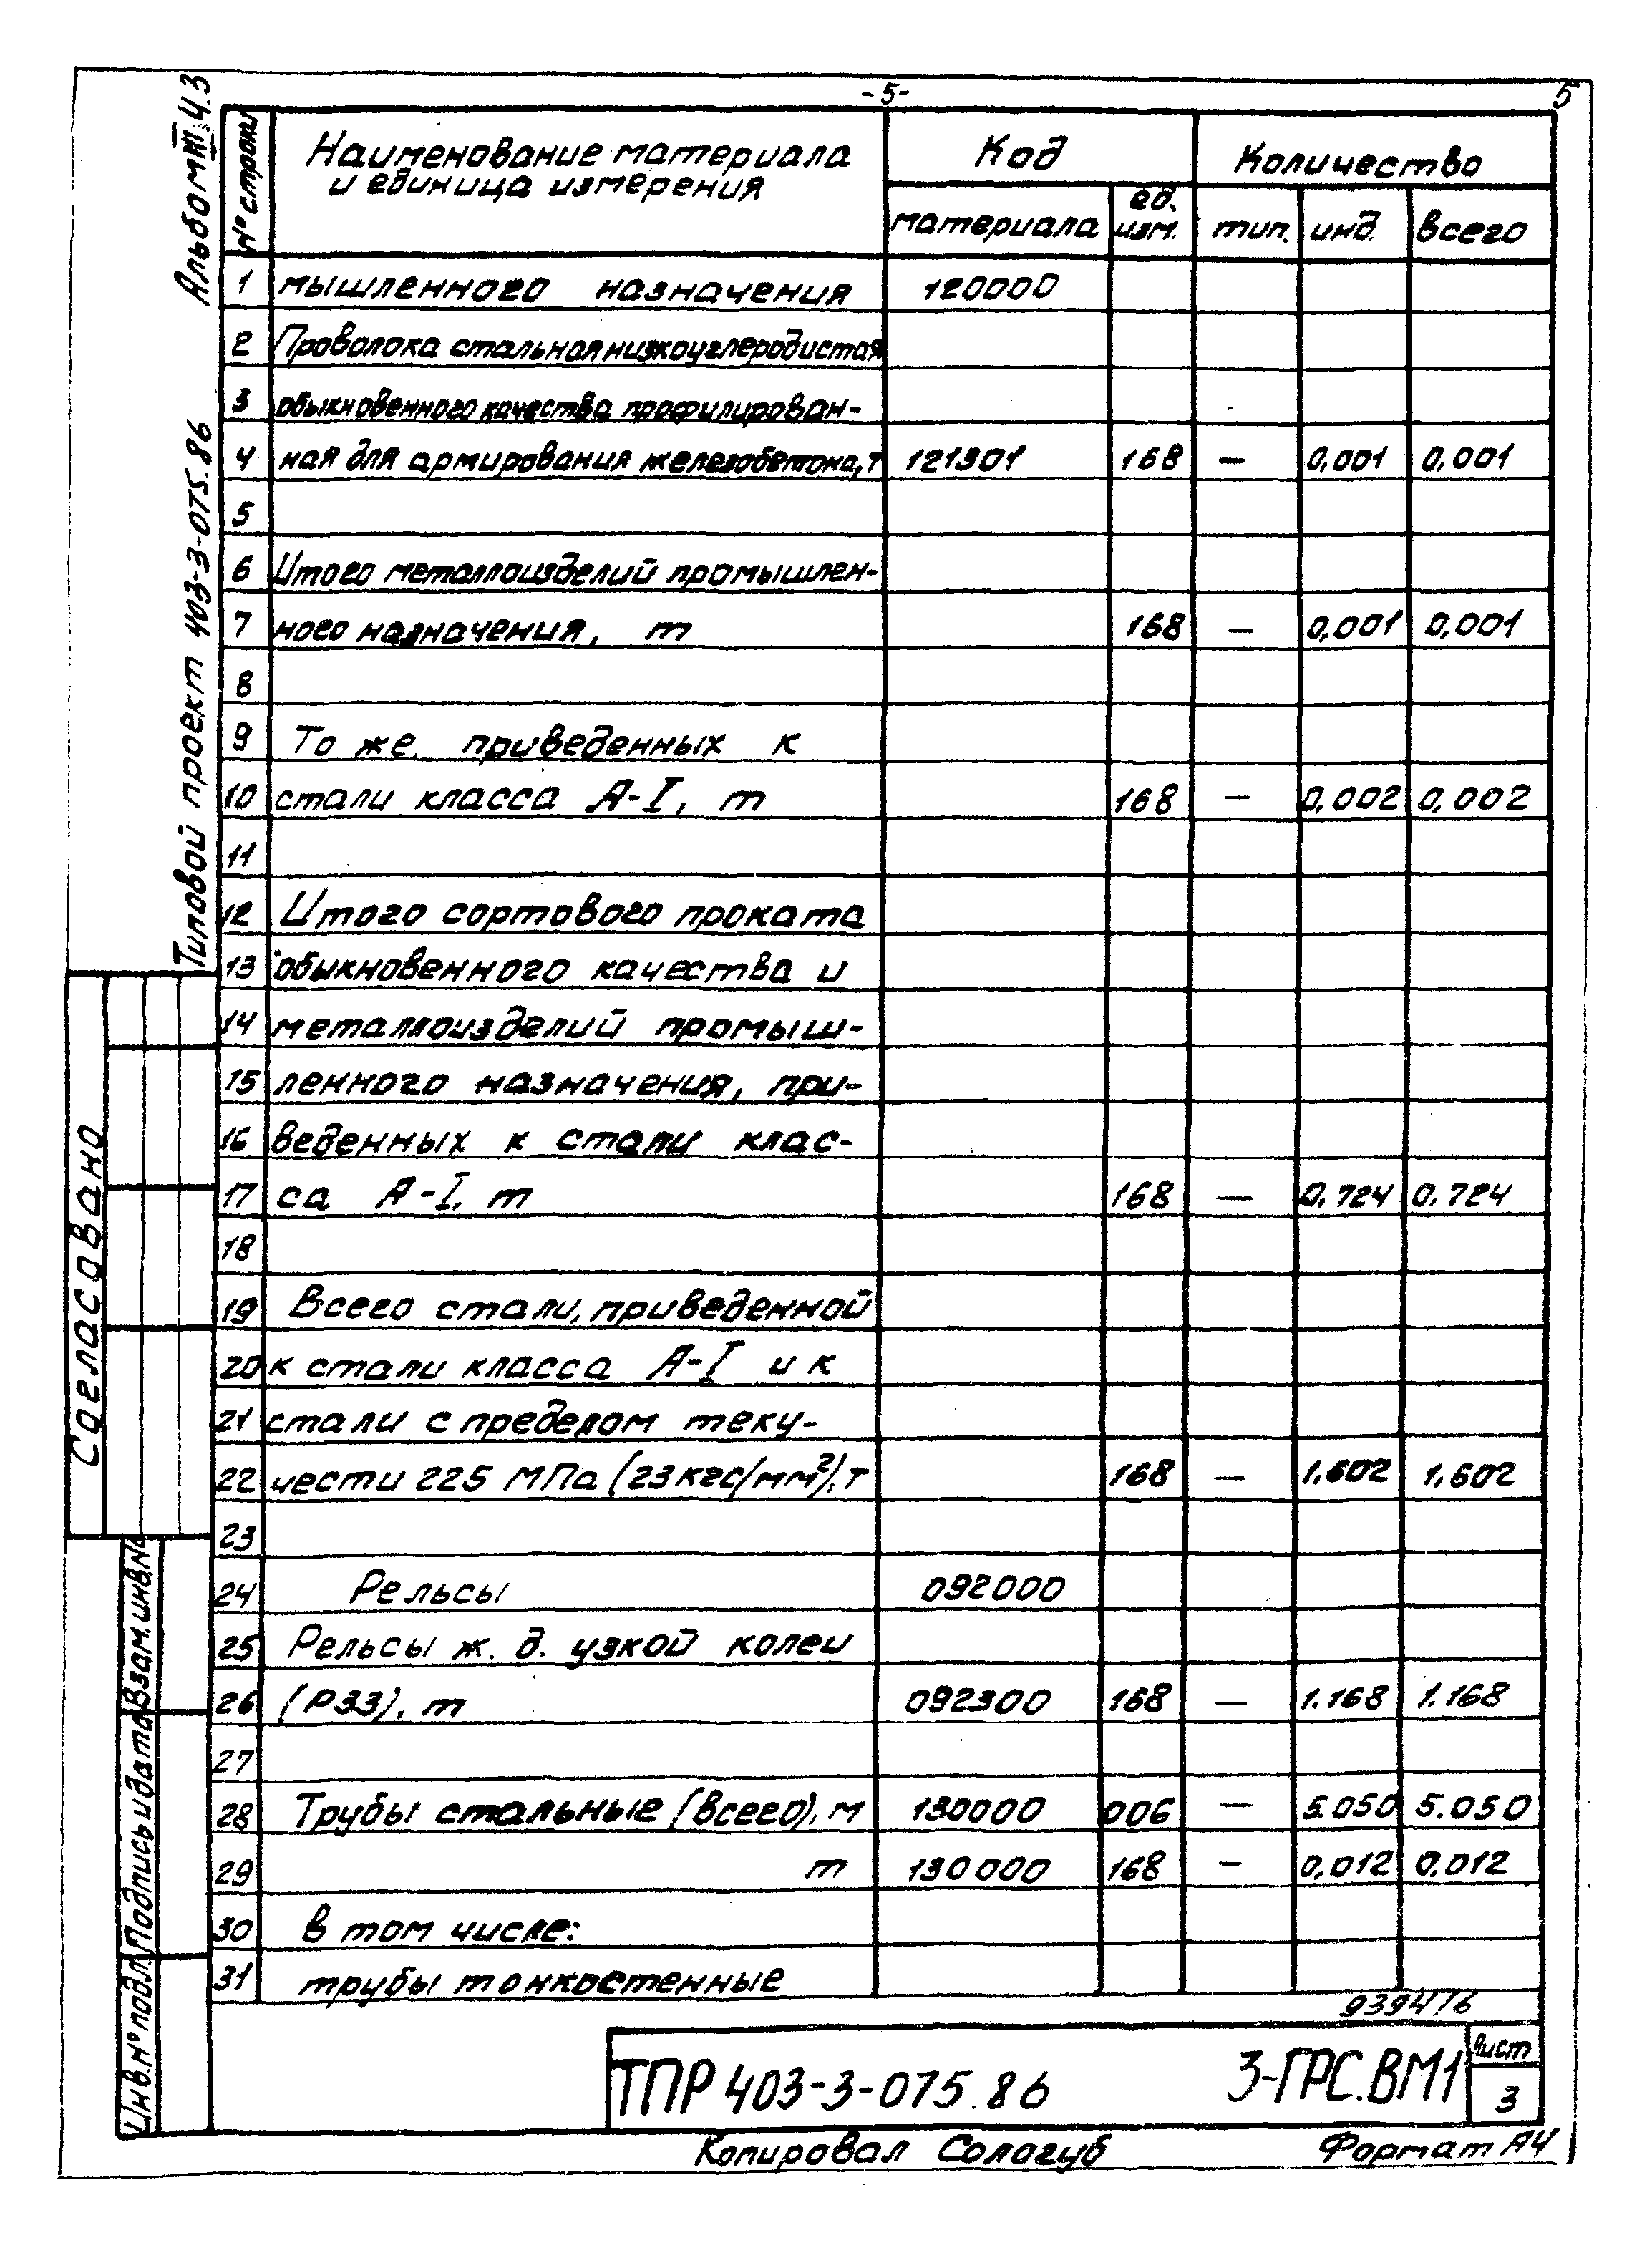 -5-
5
Альбом III ч.3
Типовой проект 403-3-075.86
№ строки
Наименование материала
и единица измерения
Код
Количество
материала
ед.
изм.
тип.
инд.
всего
1 мышленного назначения 120000
2 Проволока стальная низкоуглеродистая
3 обыкновенного качества профилирован-
4 ная для армирования железобетона, т 121301 168 — 0,001 0,001
5
6 Итого металлоизделий промышлен-
7 ного назначения, т 168 — 0,001 0,001
8
9 То же, приведенных к
10 стали класса А-I, т 168 — 0,002 0,002
11
12 Итого сортового проката
13 обыкновенного качества и
14 металлоизделий промыш-
15 ленного назначения, при-
16 веденных к стали клас-
17 са А-I, т 168 — 0,724 0,724
18
19 Всего стали, приведенной
20 к стали класса А-I и к
21 стали с пределом теку-
22 чести 225 МПа (23кгс/мм²), т 168 — 1.602 1,602
23
24 Рельсы 092000
25 Рельсы ж. д. узкой колеи
26 (Р33), т 092300 168 — 1.168 1.168
27
28 Трубы стальные (всего), м 130000 006 — 5.050 5.050
29 т 130000 168 — 0,012 0,012
30 в том числе:
31 трубы тонкостенные
Согласовано
Взам. инв.№
Подпись и дата
Инв.№ подл.
9394/6
ТПР 403-3-075.86 3-ГРС.ВМ1
Лист
3
Копировал Сологуб Формат А4